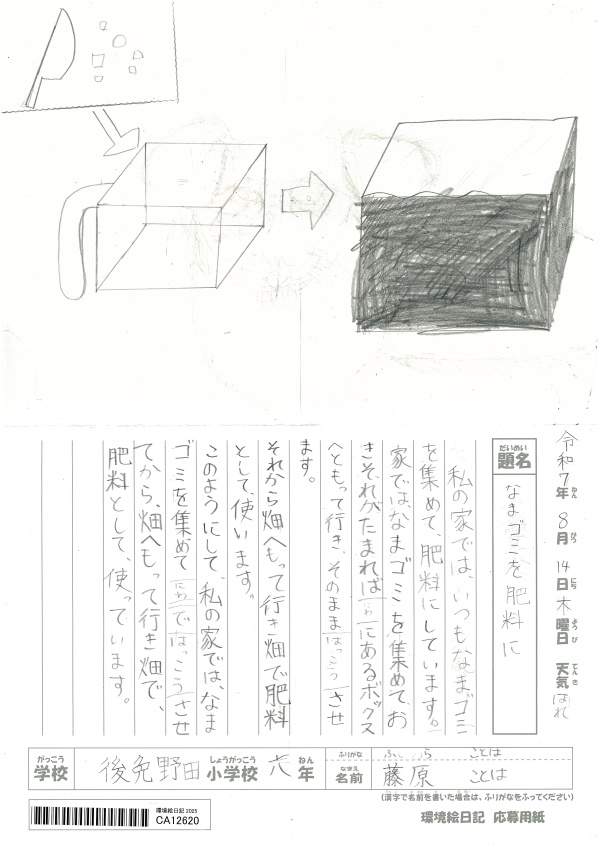 令和7年 8月 14日 木曜日 天気 はれ
ねん がつ にち ようび てんき
だいめい
題名 なまゴミを肥料に
私の家では、いつもなまゴミ
を集めて、肥料にしています。
家では、なまゴミを集めて、お
きそれがたまればにわにあるボックス
へともって行き、そのままはっこうさせ
ます。
それから畑へもって行き畑で肥料
として、使います。
このようにして、私の家では、なま
ゴミを集めてにわではっこうさせ
てから、畑へもって行き畑で、
肥料として、使っています。
がっこう しょうがっこう ねん
学校 後免野田小学校 六年
ふりがな ふじわら ことは
なまえ
名前 藤原 ことは
(漢字で名前を書いた場合は、ふりがなをふってください)
環境絵日記 2025
CA12620
環境絵日記 応募用紙